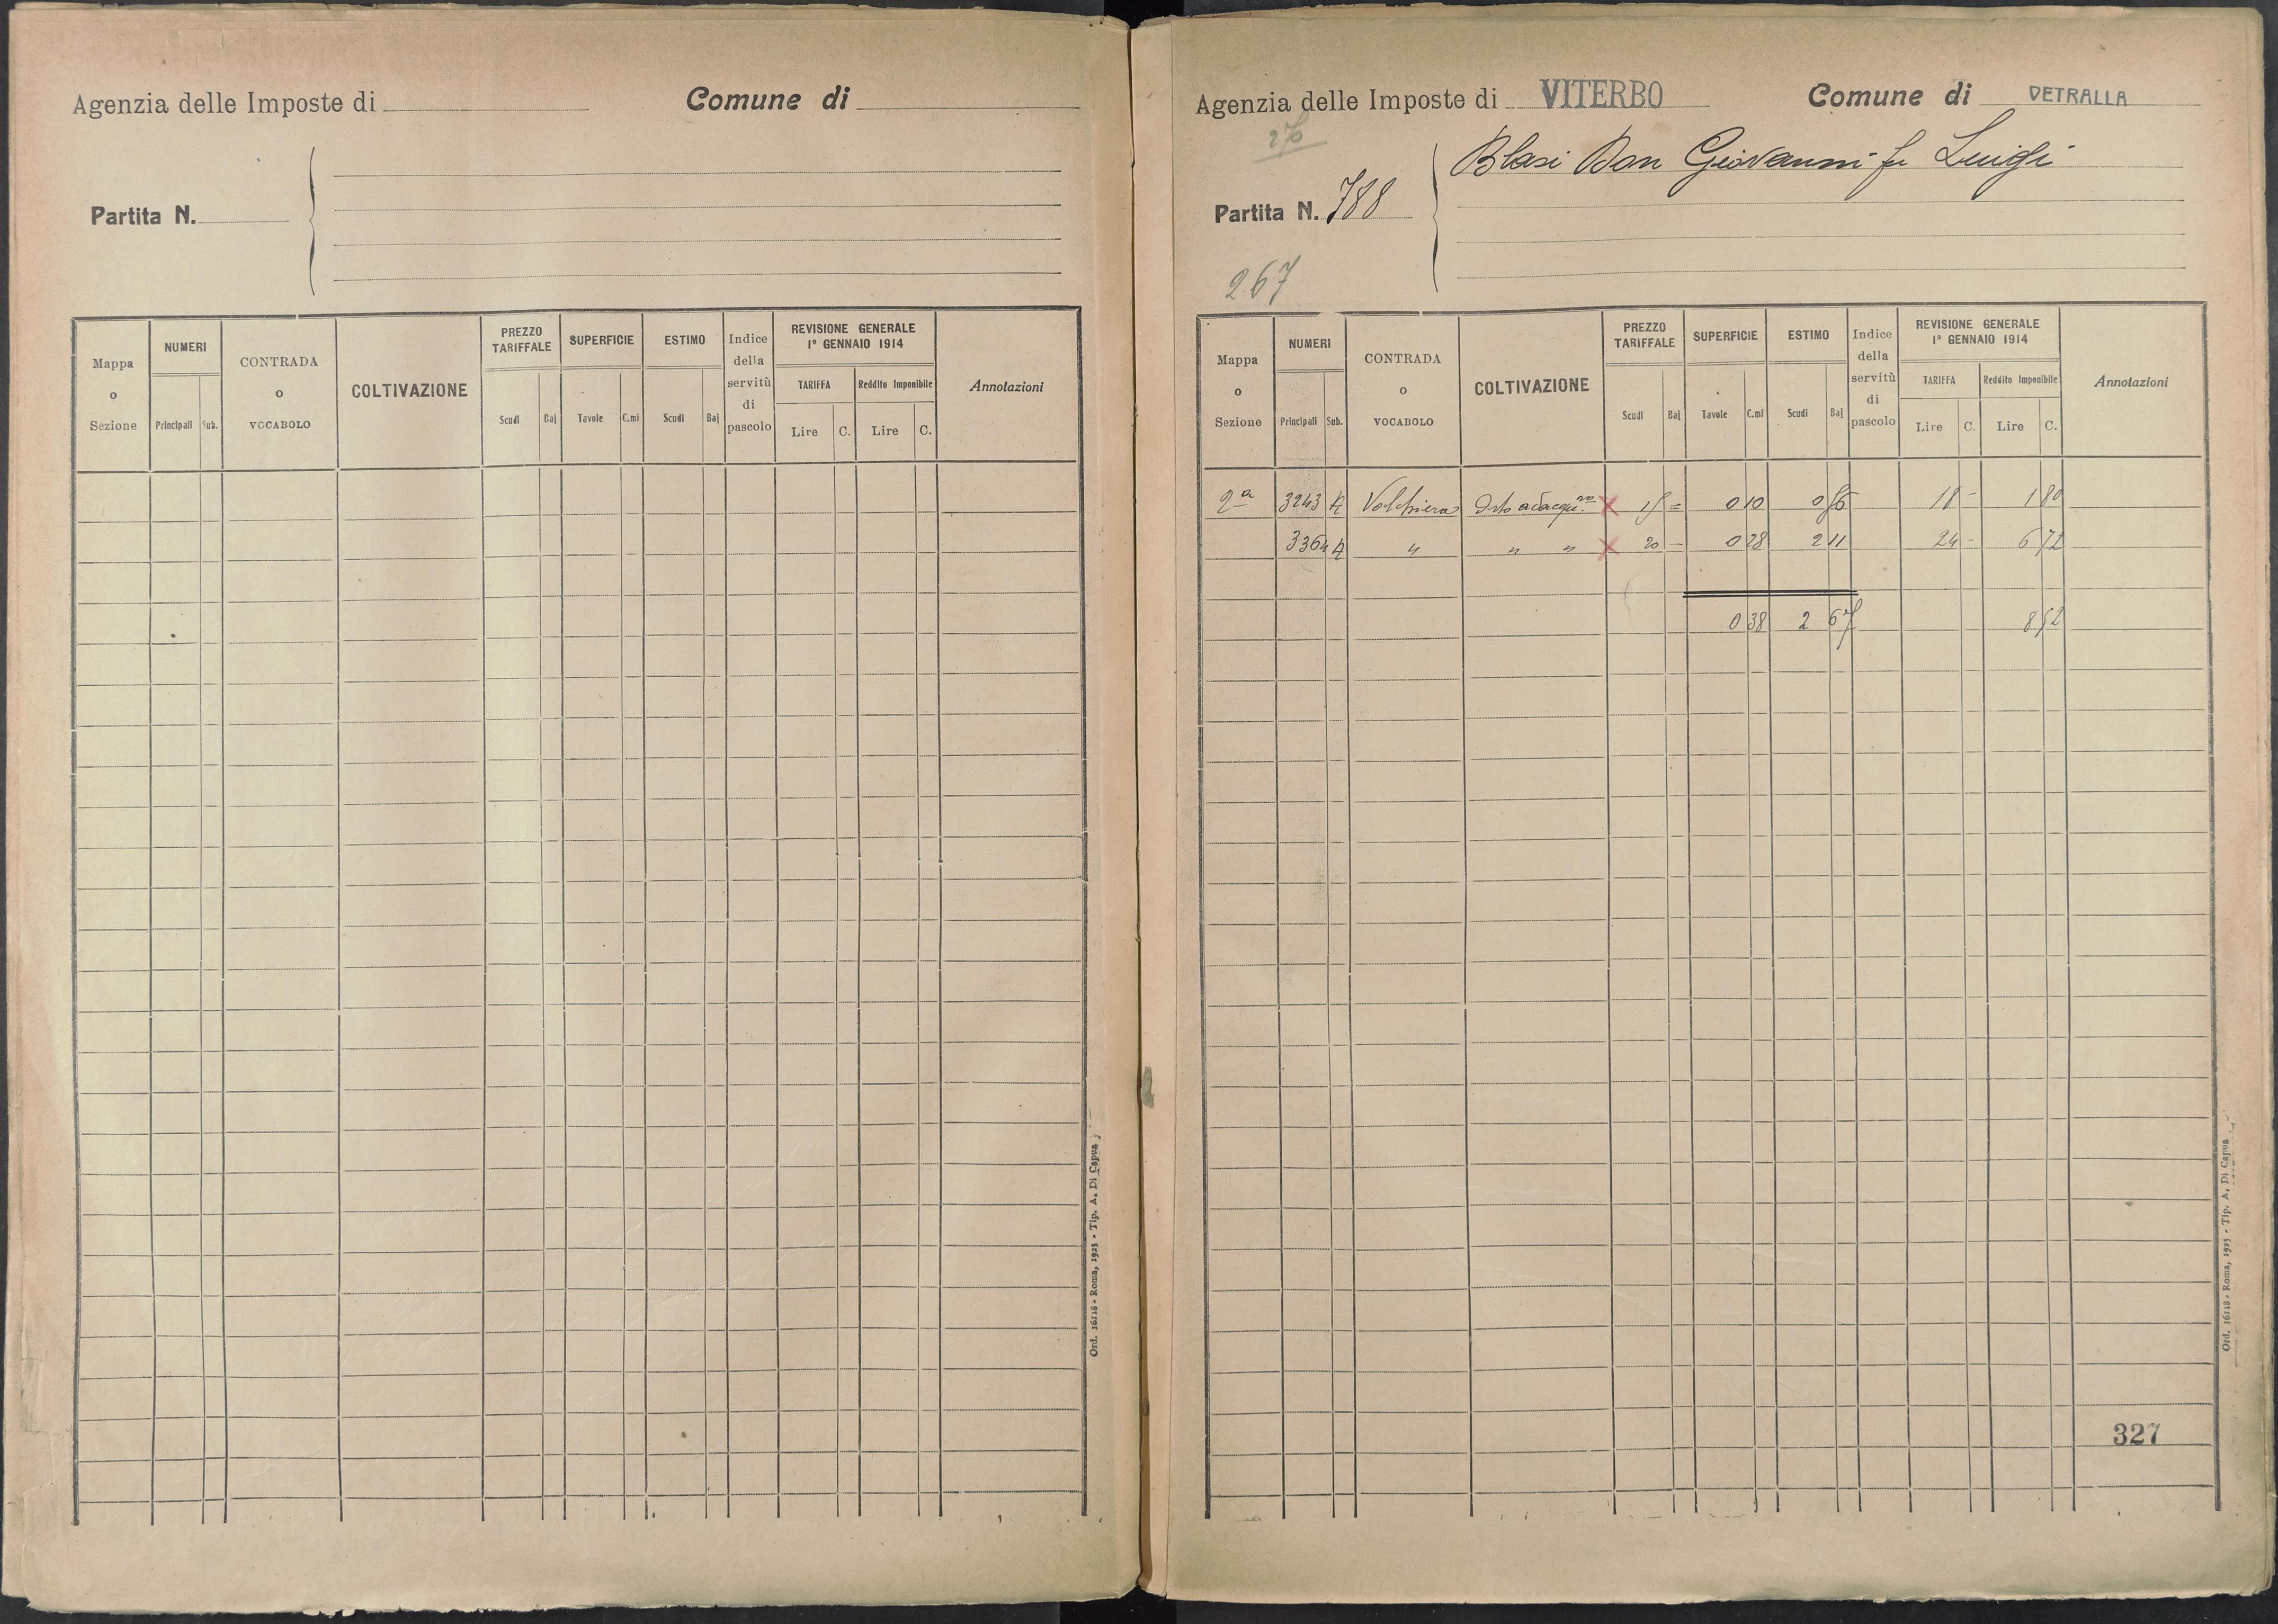 Agenzia delle Imposte di
Comune di
Partita N.
Mappa o Sezione
NUMERI
Principali Sub.
CONTRADA o VOCABOLO
COLTIVAZIONE
PREZZO TARIFFALE
Scudi Baj
SUPERFICIE
Tavole C.mi
ESTIMO
Scudi Baj
Indice della servitù di pascolo
REVISIONE GENERALE
1° GENNAIO 1914
TARIFFA
Lire C.
Reddito Imponibile
Lire C.
Annotazioni
Ord. 16118 - Roma, 1923 - Tip. A. Di Capua
Agenzia delle Imposte di VITERBO
Comune di VETRALLA
Blasi Don Giovanni fu Luigi
Partita N. 788
267
Mappa o Sezione
NUMERI
Principali Sub.
CONTRADA o VOCABOLO
COLTIVAZIONE
PREZZO TARIFFALE
Scudi Baj
SUPERFICIE
Tavole C.mi
ESTIMO
Scudi Baj
Indice della servitù di pascolo
REVISIONE GENERALE
1° GENNAIO 1914
TARIFFA
Lire C.
Reddito Imponibile
Lire C.
Annotazioni
2a 3243 Orto adacqu.vo X = 0 10 0 56 18 - 1 80
3364 " " " X 20 - 0 28 2 11 24 - 6 72
0 38 2 67 8 52
327
Ord. 16118 - Roma, 1923 - Tip. A. Di Capua